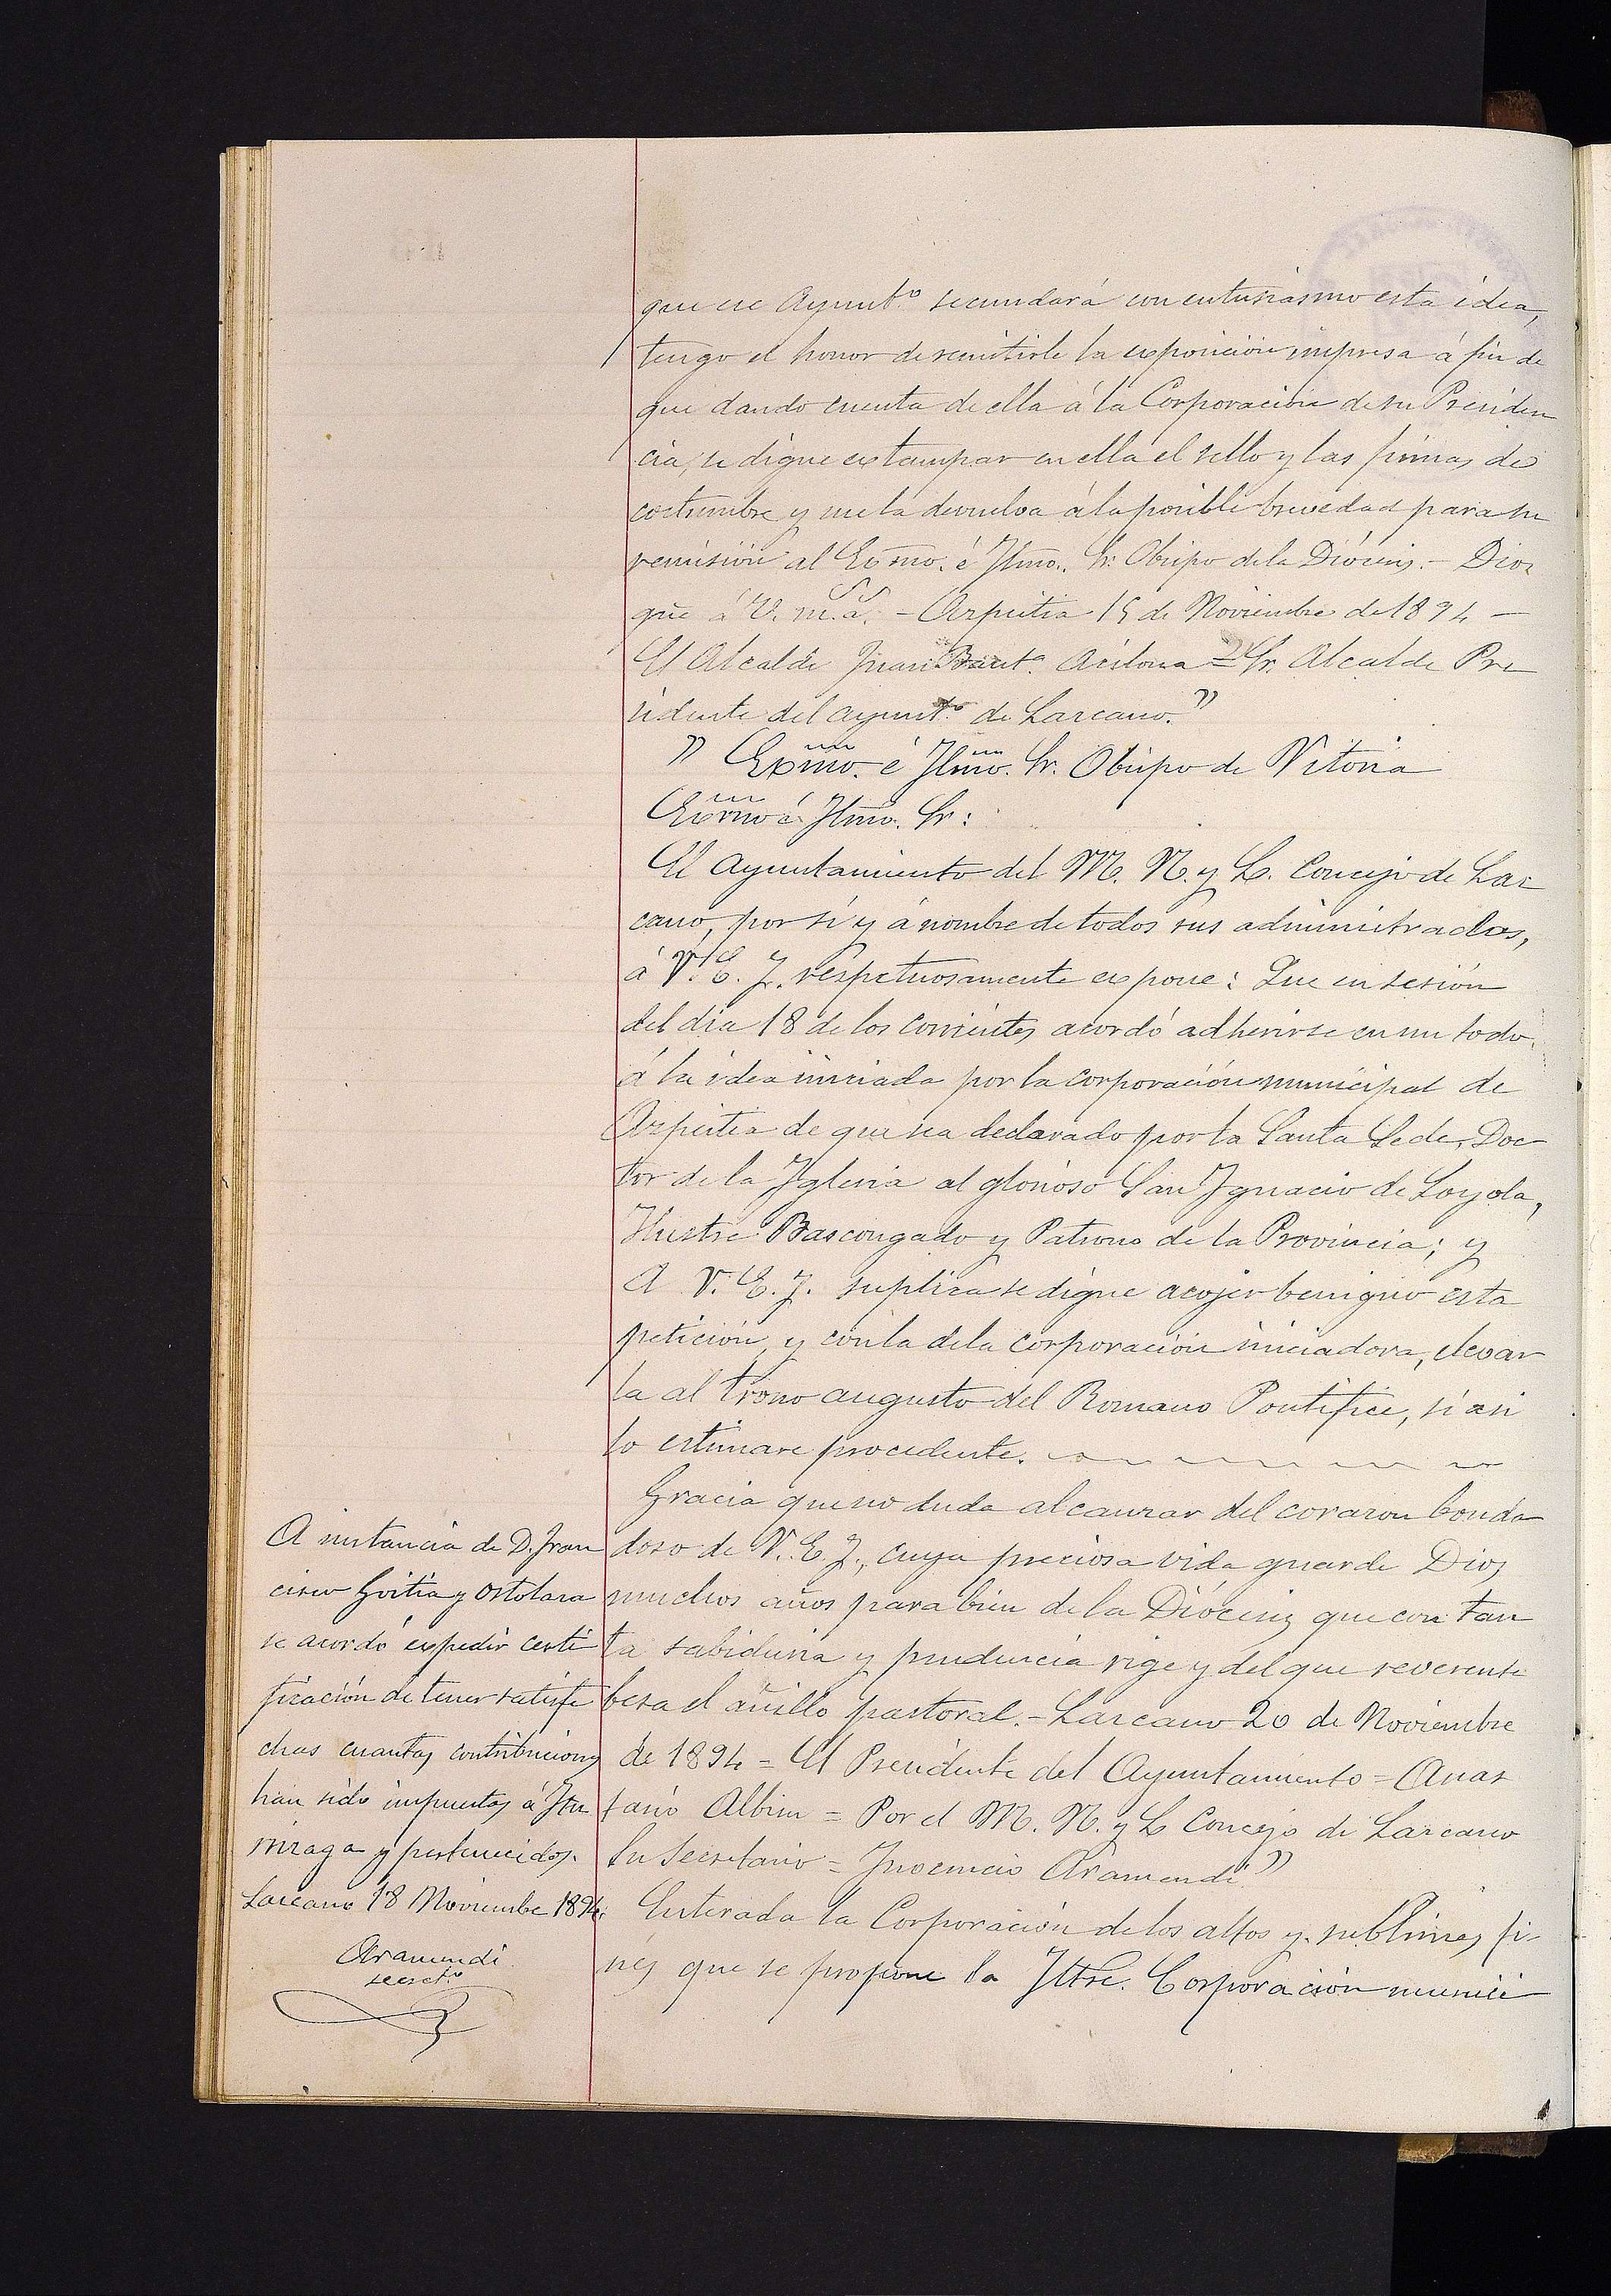 que ese Ayunt.º secundará con entusiasmo esta idea,
tengo el honor de remitirle la exposición impresa á fin de
que dando cuenta de ella á la Corporación de su Presiden
cia, se digne estampar en ella el sello y las firmas de
costumbre y me la devuelva á la posible brevedad para su
remisión al Exmo. é Iltmo. Sr. Obispo de la Diócesis.- Dios
gūe á V. m. a. - Azpeitia 15 de Noviembre de 1894 -
El Alcalde Juan Baut.ª Acilona = Sr. Alcalde Pre
sidente del ayunt.º de Lazcano."
" Exmo. é Ilmo. Sr. Obispo de Vitoria
Exmo é Iltmo. Sr:
El Ayuntamiento del M. N. y L. Concejo de Laz
cano, por si y á nombre de todos sus administrados,
á V. E. I. respetuosamente expone: Que en sesión
del dia 18 de los corrientes acordó adherirse en un todo
á la idea iniciada por la corporación municipal de
Azpeitia de que sea declarado por la Santa Sede, Doc
tor de la Iglesia al glorioso San Ignacio de Loyola,
Ilustre Bascongado y Patrono de la Provincia; y
A V. E. I. suplica se digne acojer benigno esta
petición, y con la de la corporación iniciadora, elevar
la al trono augusto del Romano Pontífice, si asi
lo estimare procedente.
Gracia que no duda alcanzar del corazon bonda
doso de V. E. I., cuya preciosa vida guarde Dios
muchos años para bien de la Diócesis que con tan
ta sabiduria y prudencia rige y del que reverente
besa el anillo pastoral. - Lazcano 20 de Noviembre
de 1894 = El Presidente del Ayuntamiento = Anas
tasio Albisu = Por el M. N. y L Concejo de Lazcano
Su Secretario = Inocencio Aramendi"
Enterada la Corporación de los altos y sublimes fi-
nes que se propone la Iltre. Corporación munici
A instancia de D. Fran
cisco Goitia y Ostolaza
se acordó expedir certi
ficación de tener satisfe
chas cuantas contribuciones
han sido impuestas á Itu
rrizaga y pertenecidos.
Lazcano 18 Noviembre 1894.
Aramendi
secret.º